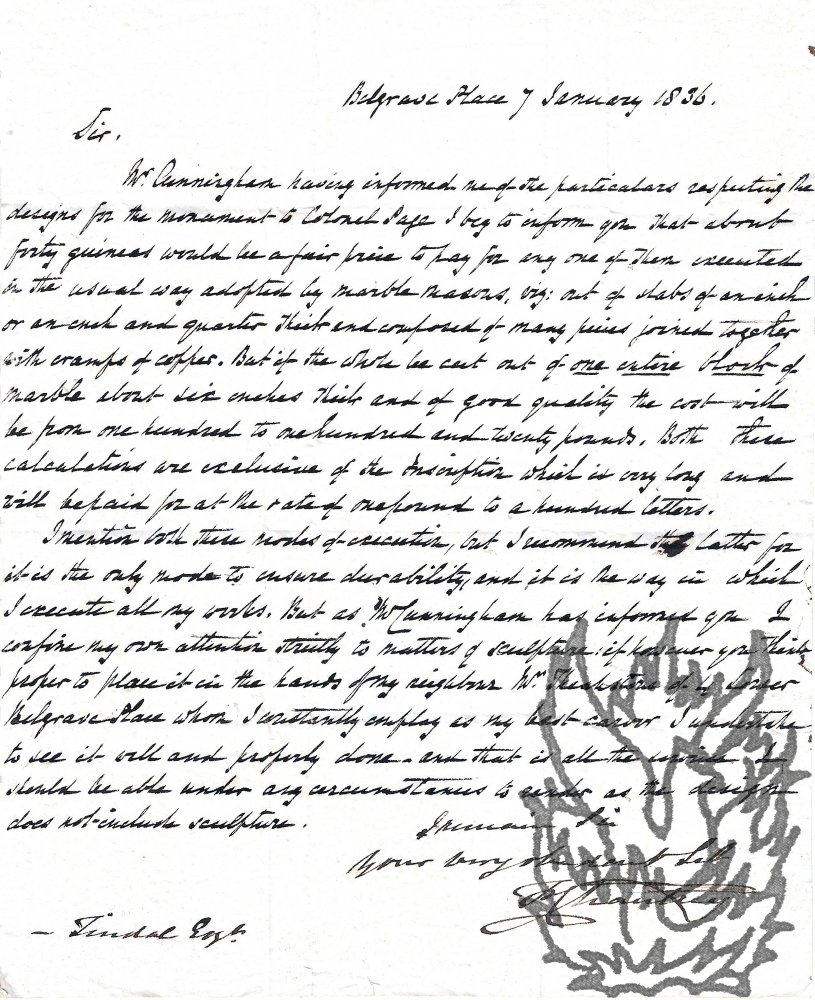 Belgrave Place 7 January 1836.
Sir.
Mr. Cunningham having informed me of the particulars respecting the
designs for the monument to Colonel Page I beg to inform you that about
forty guineas would be a fair price to pay for any one of them executed
in the usual way adopted by marble masons, viz: out of slabs of an inch
or an inch and quarter thick and composed of many pieces joined together
with cramps of copper. But if the whole be cut out of one entire block of
marble about six inches thick and of good quality the cost will
be from one hundred to one hundred and twenty pounds. Both these
calculations are exclusive of the Inscription which is very long and
will be paid for at the rate of one pound to a hundred letters.
I mention both these modes of execution, but I recommend the latter for
it is the only mode to ensure durability, and it is the way in which
I execute all my works. But as Mr Cunningham has informed you I
confine my own attention strictly to matters of sculpture: if however you think
proper to place it in the hands of my neighbour Mr. Theakstone of Lower
Belgrave Place whom I constantly employ as my best carver I undertake
to see it well and properly done - and that is all the service I
should be able under any circumstances to render as the design
does not include sculpture.
I remain Sir
Your very obedient
F Chantrey
— Tindal Esqr.